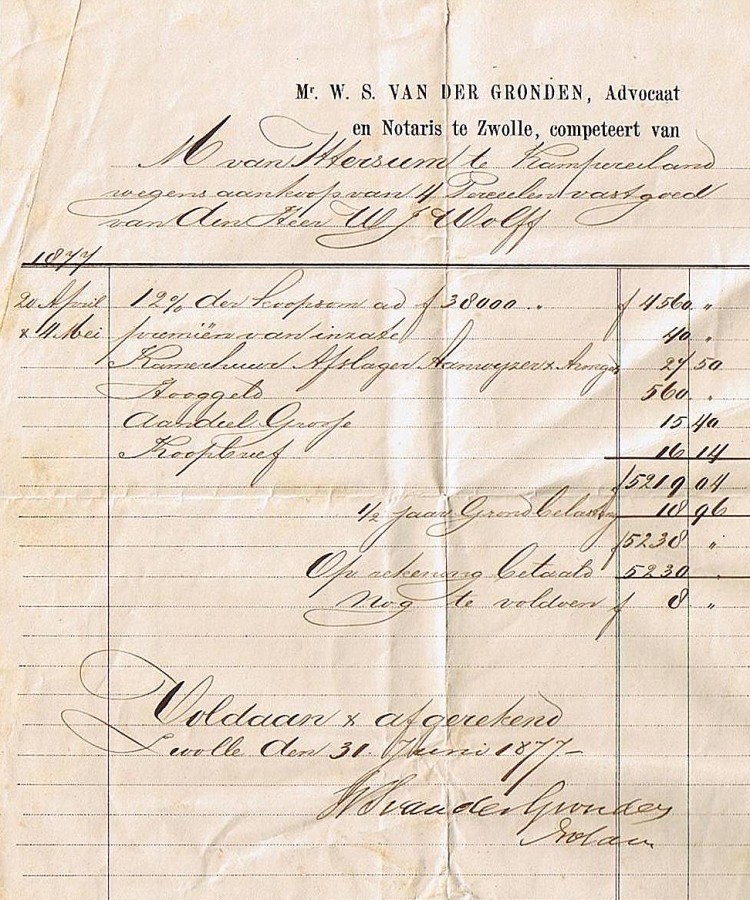 Mr. W. S. VAN DER GRONDEN, Advocaat
en Notaris te Zwolle, competeert van
M van Ittersum te Kampereiland
wegens aankoop van 4 Perceelen vastgoed
van den Heer W J Wolff
1877
20 April 12% der koopsom ad f 38000 „ f 4560 „
& 4 Mei premiën van inzate 40 „
Kamerhuur Afslager Aanwyzer & 27 50
Hooggeld 560 „
Aandeel Grosse 15 40
Koopbrief 16 14
f 5219 04
1/2 jaar Grondbelasting 18 96
f 5238 „
Op rekening betaald 5230 „
Nog te voldoen f 8 „
Voldaan & afgerekend
Zwolle den 31 Juni 1877 –
WS van der Gronden